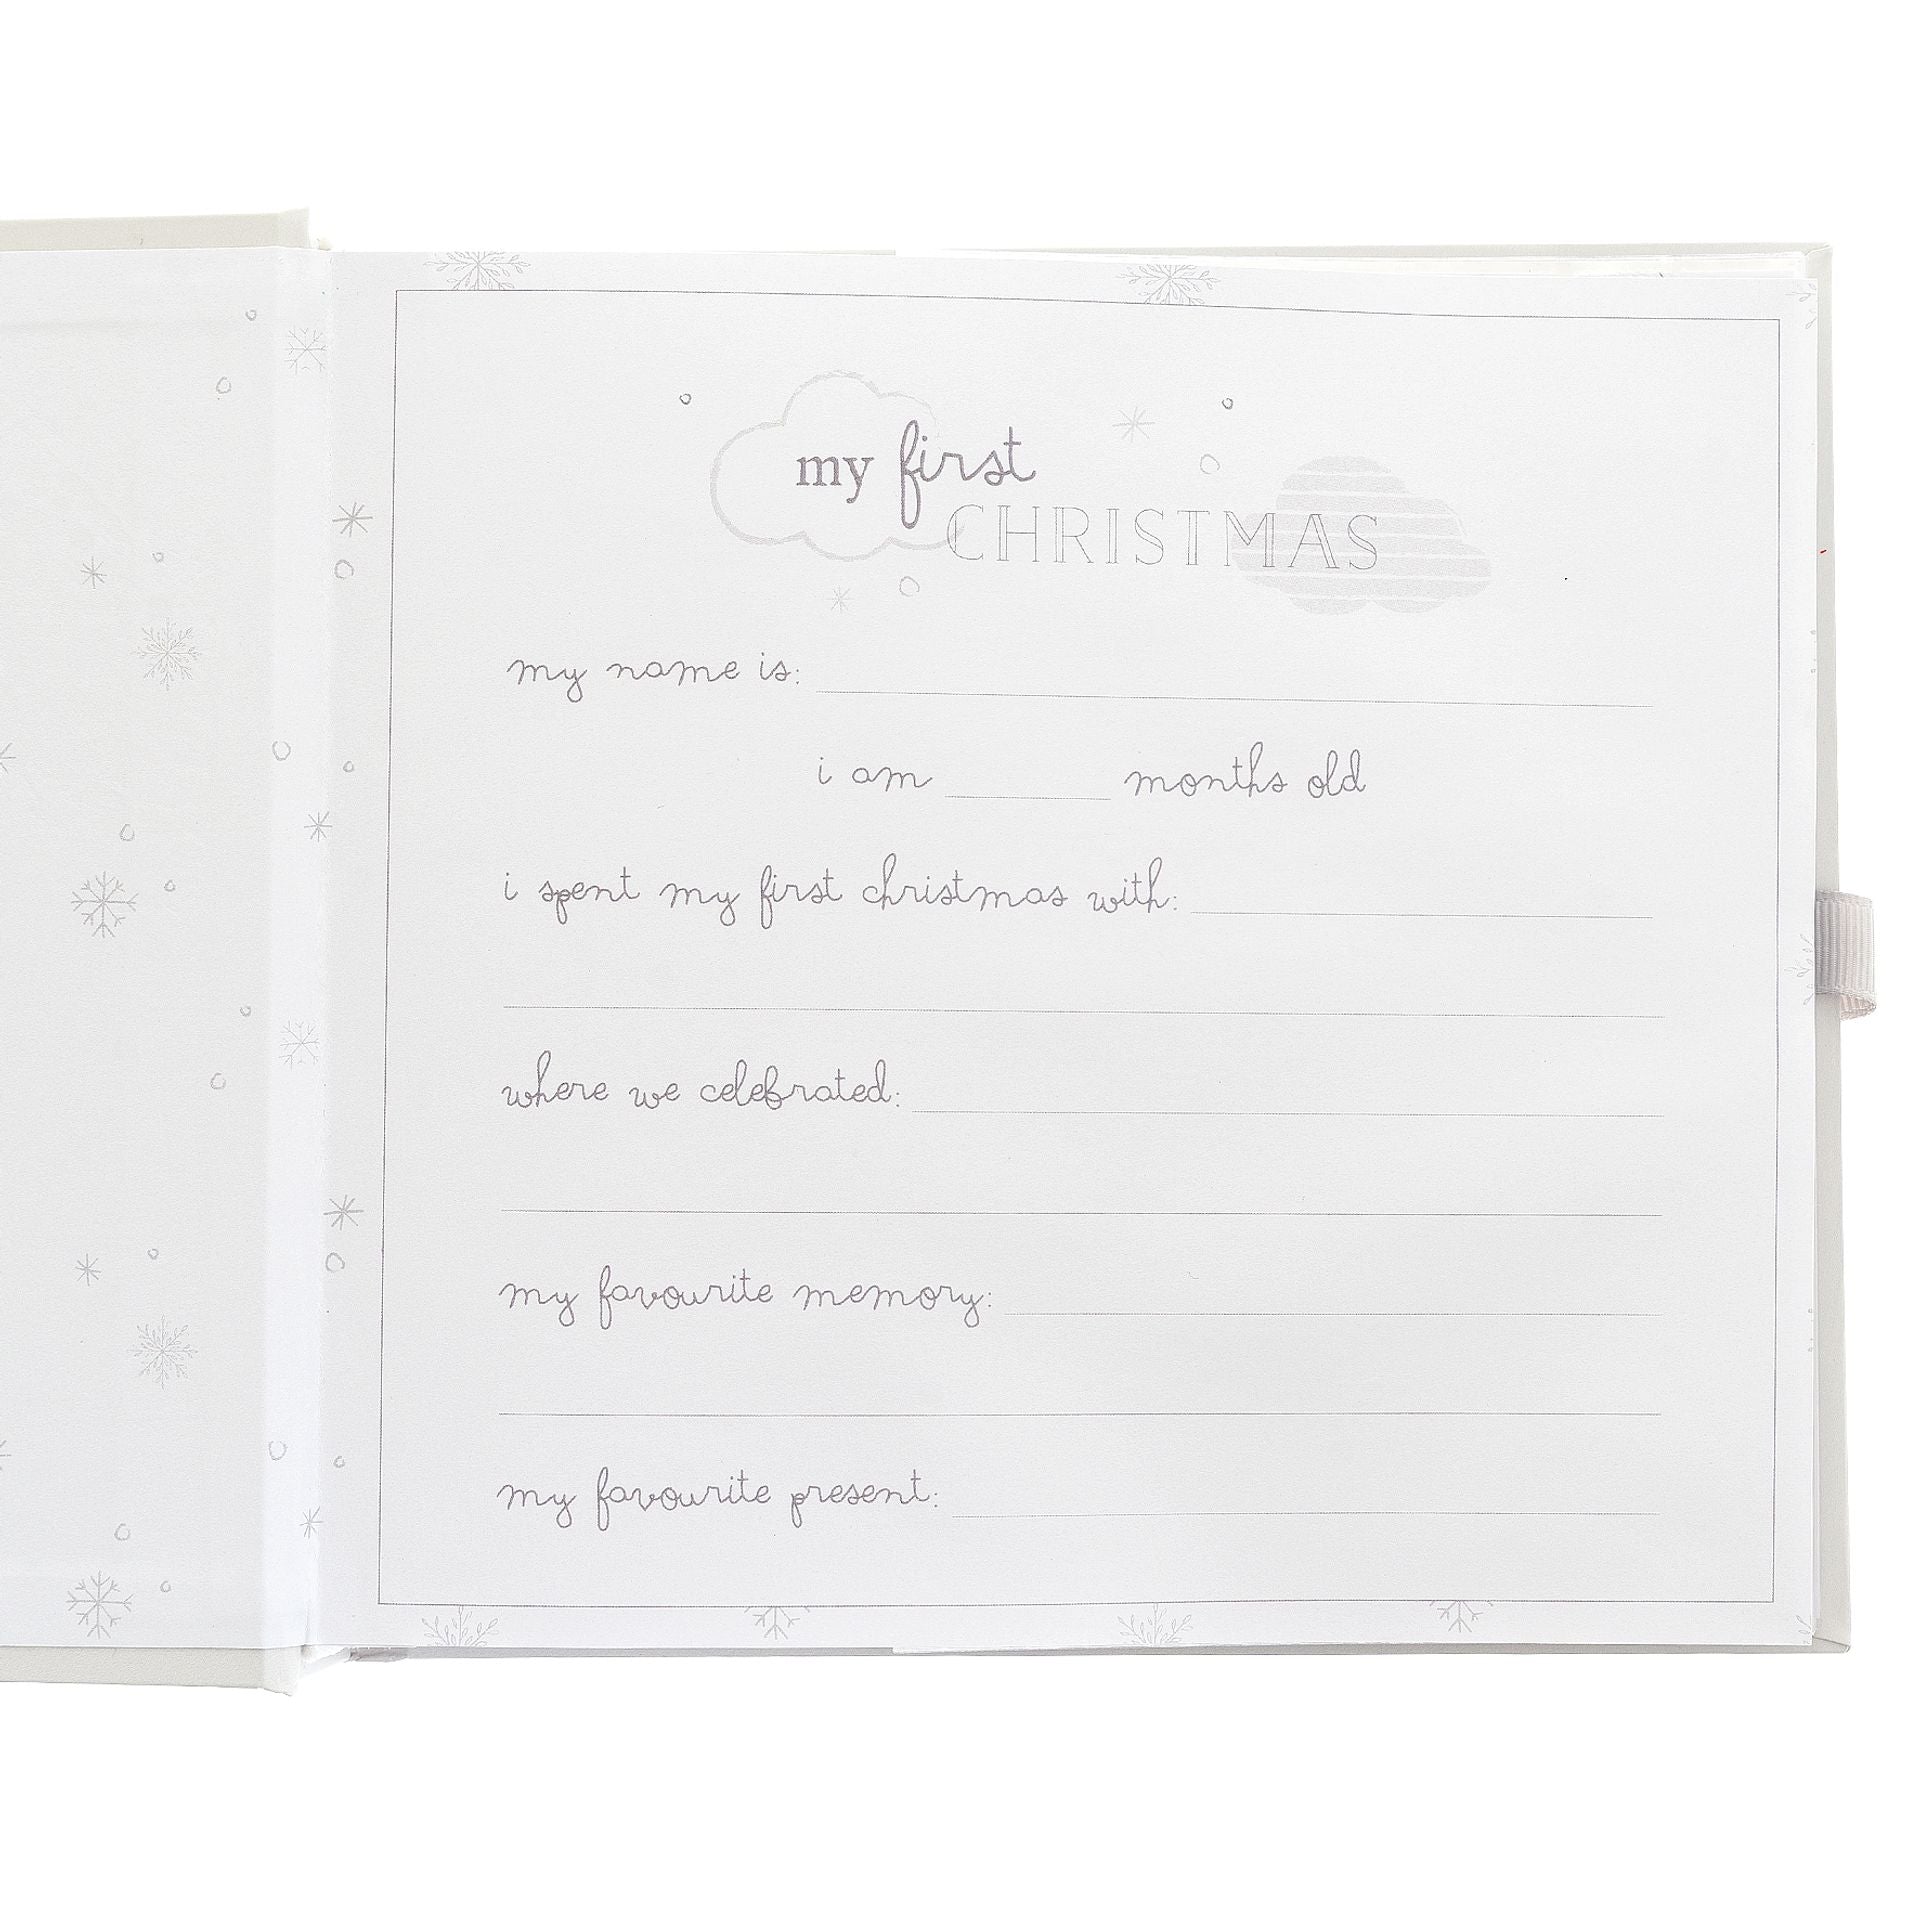 my first
CHRISTMAS
my name is:
i am months old
i spent my first christmas with:
where we celebrated:
my favourite memory:
my favourite present: